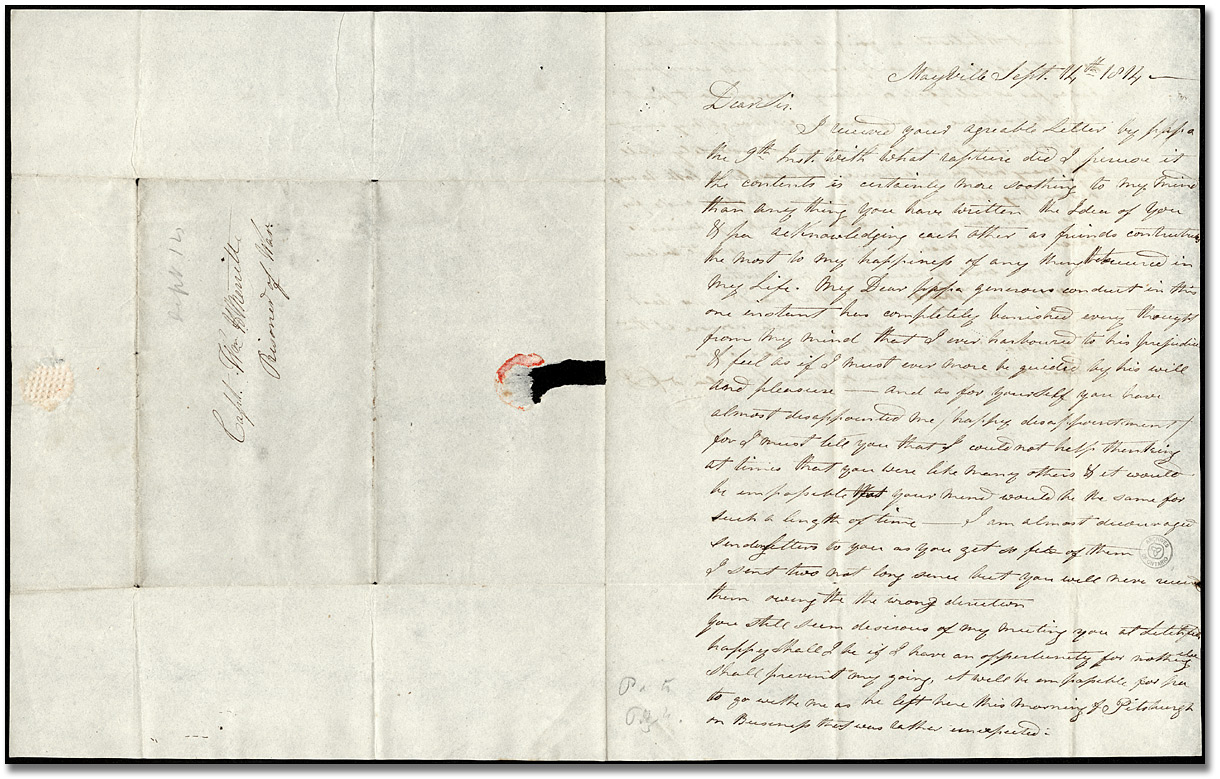 Sept 14
Capt. Wm H Merritt
Prisoner of War
Mayville Sept. 14th 1814
Dear Sir.
I received your agreable Letter by papa
the 9th Inst. with what rapture did I peruse it
the contents is certainly more soothing to my mind
than any thing you have written the Idea of you
& pa acknowledging each other as friends contributes
the most to my happiness of any thing in
my Life. My Dear papa generous conduct in this
one instant has completely banished every thought
from my mind that I ever harboured to his prejudice
& feel as if I must ever more be guided by his will
and pleasure — and as for yourself you have
almost disappointed me / happy disappointment /
for I must tell you that I could not help thinking
at times that you were like many others & it would
be impossible that your mind would be the same for
such a length of time — I am almost discouraged
sending Letters to you as you get so few of them
I sent two not long since but you will never receive
them owing to the wrong direction
you still seem desirous of my meeting you at
happy shall I be if I have an opportunity for nothing else
shall prevent my going, it will be impossible for pa
to go with me as he left here this morning for Pitsburgh
on Business that was rather unexpected.